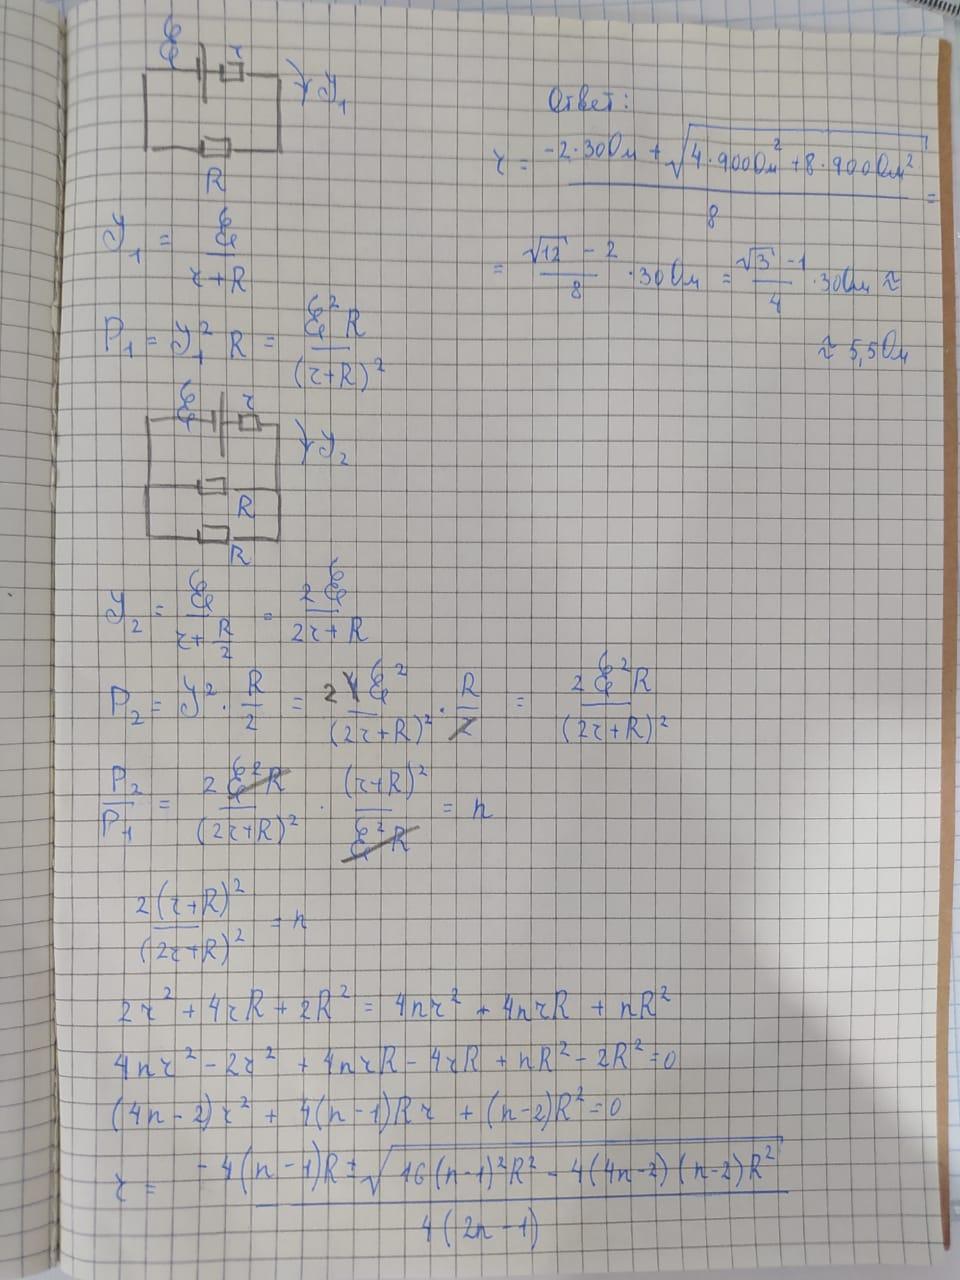 ℰ r
I₁
R
I₁ = ℰ / (r+R)
P₁ = I₁² R = ℰ²R / (r+R)²
ℰ r
I₂
R
R
I₂ = ℰ / (r + R/2) = 2ℰ / (2r+R)
P₂ = I² · R/2 = 2 4ℰ² / (2r+R)² · R/2 = 2ℰ²R / (2r+R)²
P₂/P₁ = 2ℰ²R / (2r+R)² · (r+R)² / ℰ²R = n
2(r+R)² / (2r+R)² = n
2r² + 4rR + 2R² = 4nr² + 4nrR + nR²
4nr² - 2r² + 4nrR - 4rR + nR² - 2R² = 0
(4n-2)r² + 4(n-1)Rr + (n-2)R² = 0
r = (-4(n-1)R ± √(16(n-1)²R² - 4(4n-2)(n-2)R²)) / 4(2n-1)
Ответ:
r = (-2·30Ом + √(4·900Ом² + 8·900Ом²)) / 8 =
= (√12 - 2)/8 · 30Ом = (√3 - 1)/4 · 30Ом ≈
≈ 5,5Ом